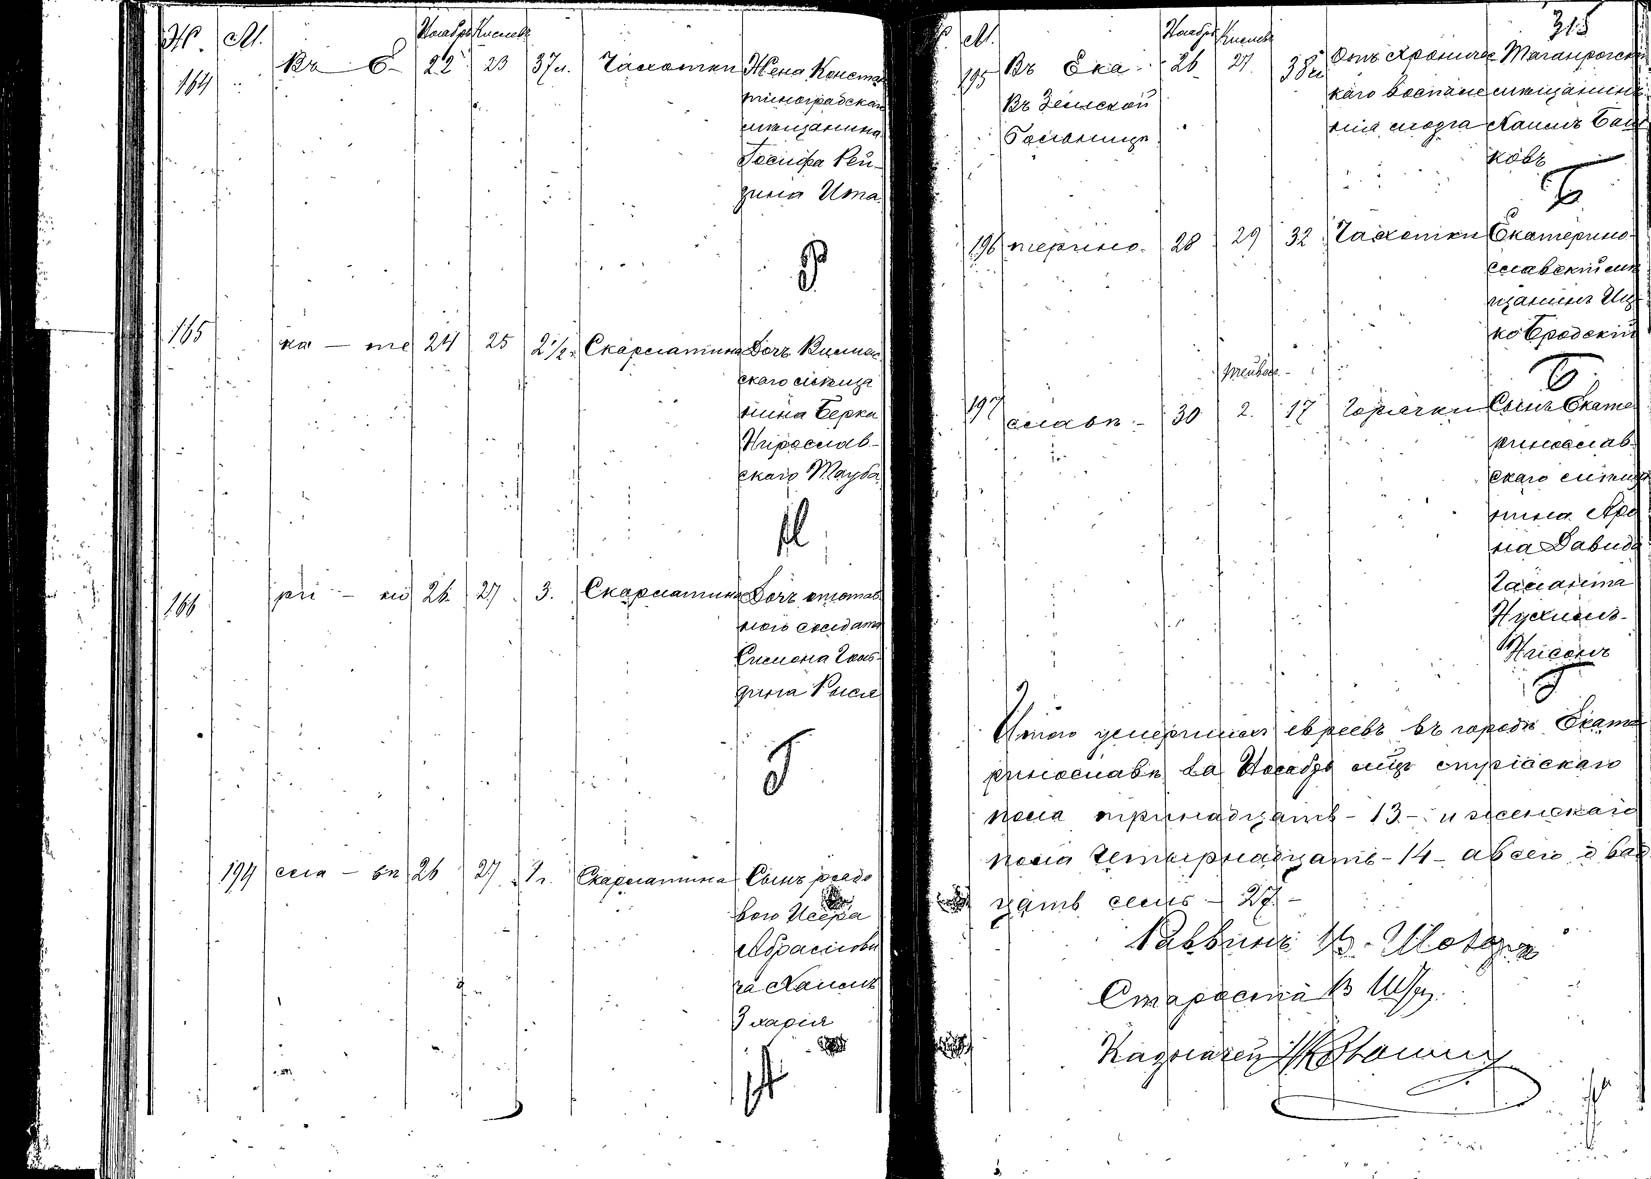 Ж. М.
Ноябрь Кислевъ
164 Въ Е- 22 23 37 л. Чахотки Жена Констан
тиноградскаго
мѣщанина
Іосифа Рей-
зина Ита.
Р
165 ка - те 24 25 2 1/2 Скарлатина Дочь Вилкомир
скаго мѣща
нина Берка
скаго Тауба
Н
166 ри - но 26 27 3. Скарлатина Дочь отстав
ного солдата
Симона Голь-
дина Рися
Г
194 сла - вѣ 26 27 1 г. Скарлатина Сынъ рядо
вого Исера
Абрамови
ча Хаимъ
Захарія
А
315
М.
Ноябрь Кислевъ
195 Въ Ека- 26 27 38 Отъ хроничес Таганрогскій
каго воспале мѣщанинъ
нія мозга Хаимъ
Въ Земской
Больницѣ
ковъ
Б
196 терино- 28 29 32 Чахотки Екатерино-
славскій мѣ
щанинъ Иц-
ко Бродскій
Б
Тейвесъ
197 славѣ - 30 2. 17 Горячки Сынъ Екате
ринослав-
скаго мѣща
нина Аро
на Давида
Галанта
Нухимъ-
Нисонъ
Г
Итого умершихъ евреевъ въ городѣ Екате
ринославѣ за Ноябрь мѣц мужескаго
пола тринадцать - 13 - и женскаго
пола четырнадцать - 14 - а всего два
цать семь - 27 -
Раввинъ
Староста В
Казначей